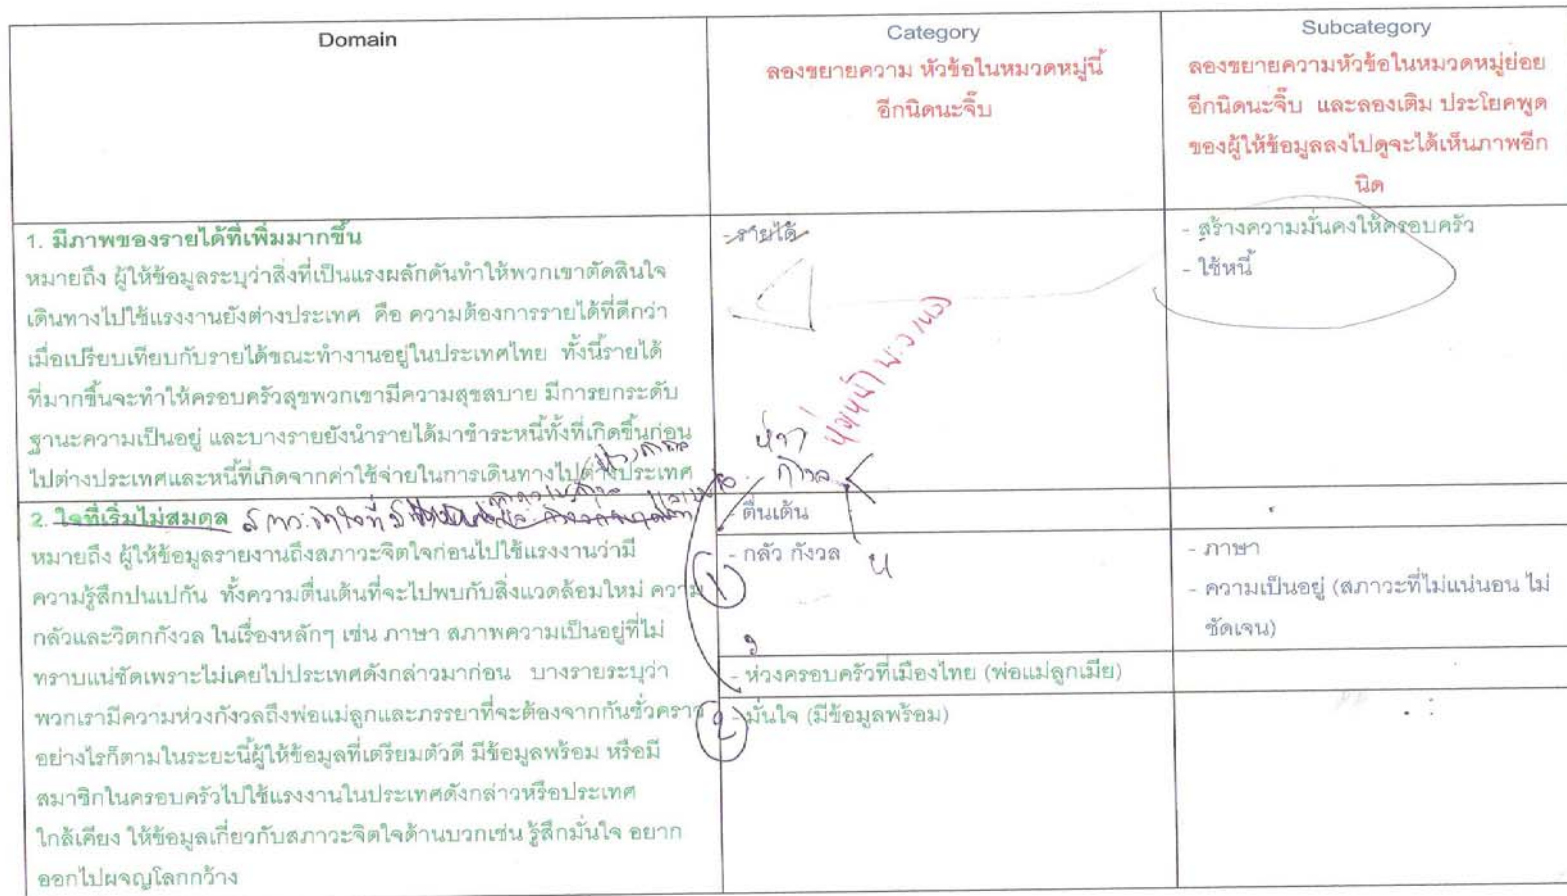 Domain
Category
ลองขยายความ หัวข้อในหมวดหมู่นี้
อีกนิดนะจิ๊บ
Subcategory
ลองขยายความหัวข้อในหมวดหมู่ย่อย
อีกนิดนะจิ๊บ และลองเติม ประโยคพูด
ของผู้ให้ข้อมูลลงไปดูจะได้เห็นภาพอีก
นิด
1. มีภาพของรายได้ที่เพิ่มมากขึ้น
หมายถึง ผู้ให้ข้อมูลระบุว่าสิ่งที่เป็นแรงผลักดันทำให้พวกเขาตัดสินใจ
เดินทางไปใช้แรงงานยังต่างประเทศ คือ ความต้องการรายได้ที่ดีกว่า
เมื่อเปรียบเทียบกับรายได้ขณะทำงานอยู่ในประเทศไทย ทั้งนี้รายได้
ที่มากขึ้นจะทำให้ครอบครัวสุขพวกเขามีความสุขสบาย มีการยกระดับ
ฐานะความเป็นอยู่ และบางรายยังนำรายได้มาชำระหนี้ทั้งที่เกิดขึ้นก่อน
ไปต่างประเทศและหนี้ที่เกิดจากค่าใช้จ่ายในการเดินทางไปต่างประเทศ
- รายได้
- สร้างความมั่นคงให้ครอบครัว
- ใช้หนี้
ห่วง
กังวล
2. ใจที่เริ่มไม่สมดุล
หมายถึง ผู้ให้ข้อมูลรายงานถึงสภาวะจิตใจก่อนไปใช้แรงงานว่ามี
ความรู้สึกปนเปกัน ทั้งความตื่นเต้นที่จะไปพบกับสิ่งแวดล้อมใหม่ ความ
กลัวและวิตกกังวล ในเรื่องหลักๆ เช่น ภาษา สภาพความเป็นอยู่ที่ไม่
ทราบแน่ชัดเพราะไม่เคยไปประเทศดังกล่าวมาก่อน บางรายระบุว่า
พวกเรามีความห่วงกังวลถึงพ่อแม่ลูกและภรรยาที่จะต้องจากกันชั่วคราว
อย่างไรก็ตามในระยะนี้ผู้ให้ข้อมูลที่เตรียมตัวดี มีข้อมูลพร้อม หรือมี
สมาชิกในครอบครัวไปใช้แรงงานในประเทศดังกล่าวหรือประเทศ
ใกล้เคียง ให้ข้อมูลเกี่ยวกับสภาวะจิตใจด้านบวกเช่น รู้สึกมั่นใจ อยาก
ออกไปผจญโลกกว้าง
- ตื่นเต้น
- กลัว กังวล
- ภาษา
- ความเป็นอยู่ (สภาวะที่ไม่แน่นอน ไม่
ชัดเจน)
1
- ห่วงครอบครัวที่เมืองไทย (พ่อแม่ลูกเมีย)
2
- มั่นใจ (มีข้อมูลพร้อม)